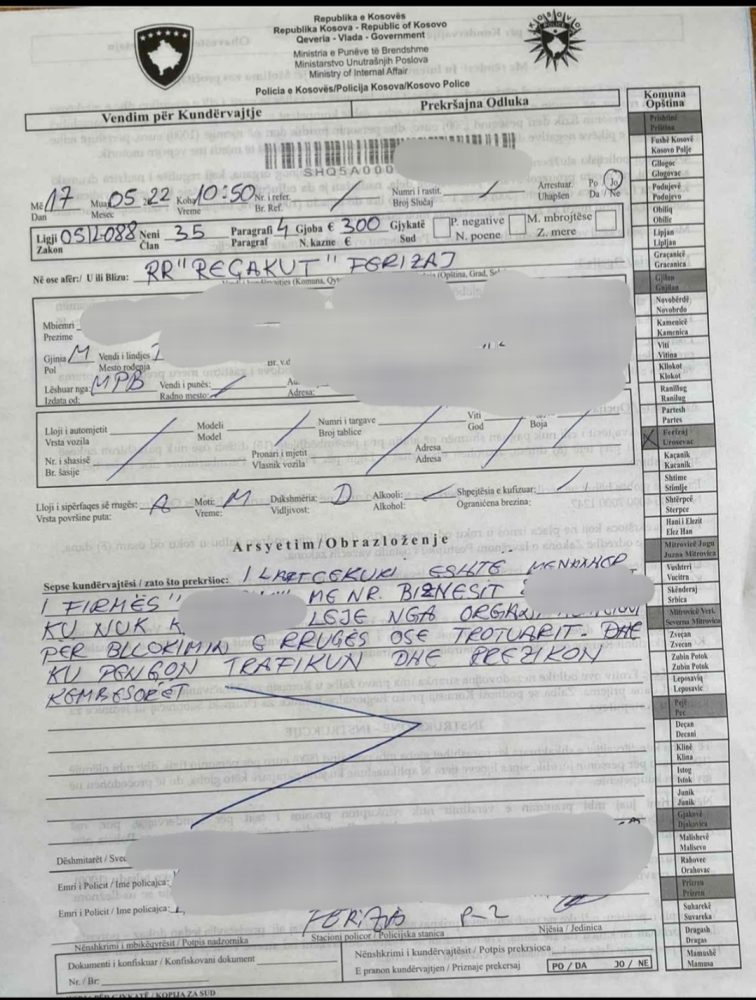 Republika e Kosovës
Republika Kosova - Republic of Kosovo
Qeveria - Vlada - Government
Ministria e Punëve të Brendshme
Ministarstvo Unutrašnjih Poslova
Ministry of Internal Affair
Policia e Kosovës/Policija Kosova/Kosovo Police
KOSOVO
POLICE
Vendim për Kundërvajtje
Prekršajna Odluka
SHQ5A000
Më 17 Muaj 05.22 Koha 10:50 Nr. i refer. / Numri i rastit. / Arrestuar. Po / Jo
Dan Mesec Vreme Br. Ref. Broj Slučaj Uhapšen Da / Ne
Ligji 05/L-088 Neni 35 Paragrafi 4 Gjoba € 300 Gjykatë P. negative M. mbrojtëse
Zakon Član Paragraf N. kazne € Sud N. poene Z. mere
Në ose afër:/ U ili Blizu: RR "REGAKUT" FERIZAJ
Mbiemri
Prezime
Gjinia M Vendi i lindjes
Pol Mesto rođenja Br.
Lëshuar nga: MPB Vendi i punës: /
Izdata od: Radno mesto: Adresa:
Lloji i automjetit Modeli Numri i targave Viti Ngjyra
Vrsta vozila Model Broj tablice God Boja
Nr. i shasisë Pronari i mjetit Adresa
Br. šasije Vlasnik vozila Adresa
Lloji i sipërfaqes së rrugës: A Moti: M Dukshmëria: D Alkooli: / Shpejtësia e kufizuar: /
Vrsta površine puta: Vreme: Vidljivost: Alkohol: Ograničena brezina:
Arsyetim/Obrazloženje
Sepse kundërvajtësi / zato što prekršioc: I LARTCEKURI ESHTE MENAXHER
I FIRMËS " ME NR. BIZNESIT
KU NUK LEJE NGA ORGANI
PER BLLOKIMIN E RRUGËS OSE TROTUARIT. DHE
KU PENGON TRAFIKUN DHE RREZIKON
KEMBESORËT
Dëshmitarët /
Emri i Policit / Ime policajca:
Emri i Policit / Ime policajca:
FERIZAJ P-2
Nënshkrimi i mbikëqyrësit / Potpis nadzornika Stacioni policor / Policijska stanica Njësia / Jedinica
Dokumenti i konfiskuar / Konfiskovani dokument
Nr. / Br:
Nënshkrimi i kundërvajtësit / Potpis prekrsioca
E pranon kundërvajtjen / Priznaje prekersaj PO / DA JO / NE
KOPIJA ZA SUD
Komuna
Opština
Prishtinë
Priština
Fushë Kosovë
Kosovo Polje
Gllogoc
Glogovac
Podujevë
Podujevo
Obiliq
Obilic
Lipjan
Lipljan
Graçanicë
Gracanica
Gjilan
Gnjilan
Novobërdë
Novobrdo
Kamenicë
Kamenica
Viti
Vitina
Kllokot
Klokot
Ranillug
Ranilug
Partesh
Partes
Ferizaj
Urosevac
Kaçanik
Kacanik
Shtime
Stimlje
Shtërpcë
Sterpce
Hani i Elezit
Elez Han
Mitrovicë Jugu
Juzna Mitrovica
Vushtrri
Vucitrn
Skënderaj
Srbica
Mitrovicë Veri.
Severna Mitrovica
Zveçan
Zvecan
Zubin Potok
Zubin Potok
Leposaviq
Leposavic
Pejë
Pec
Deçan
Decani
Klinë
Klina
Istog
Istok
Junik
Junik
Gjakovë
Djakovica
Malishevë
Malisevo
Rahovec
Orahovac
Prizren
Prizren
Suharekë
Suvareka
Dragash
Dragas
Mamushë
Mamusa